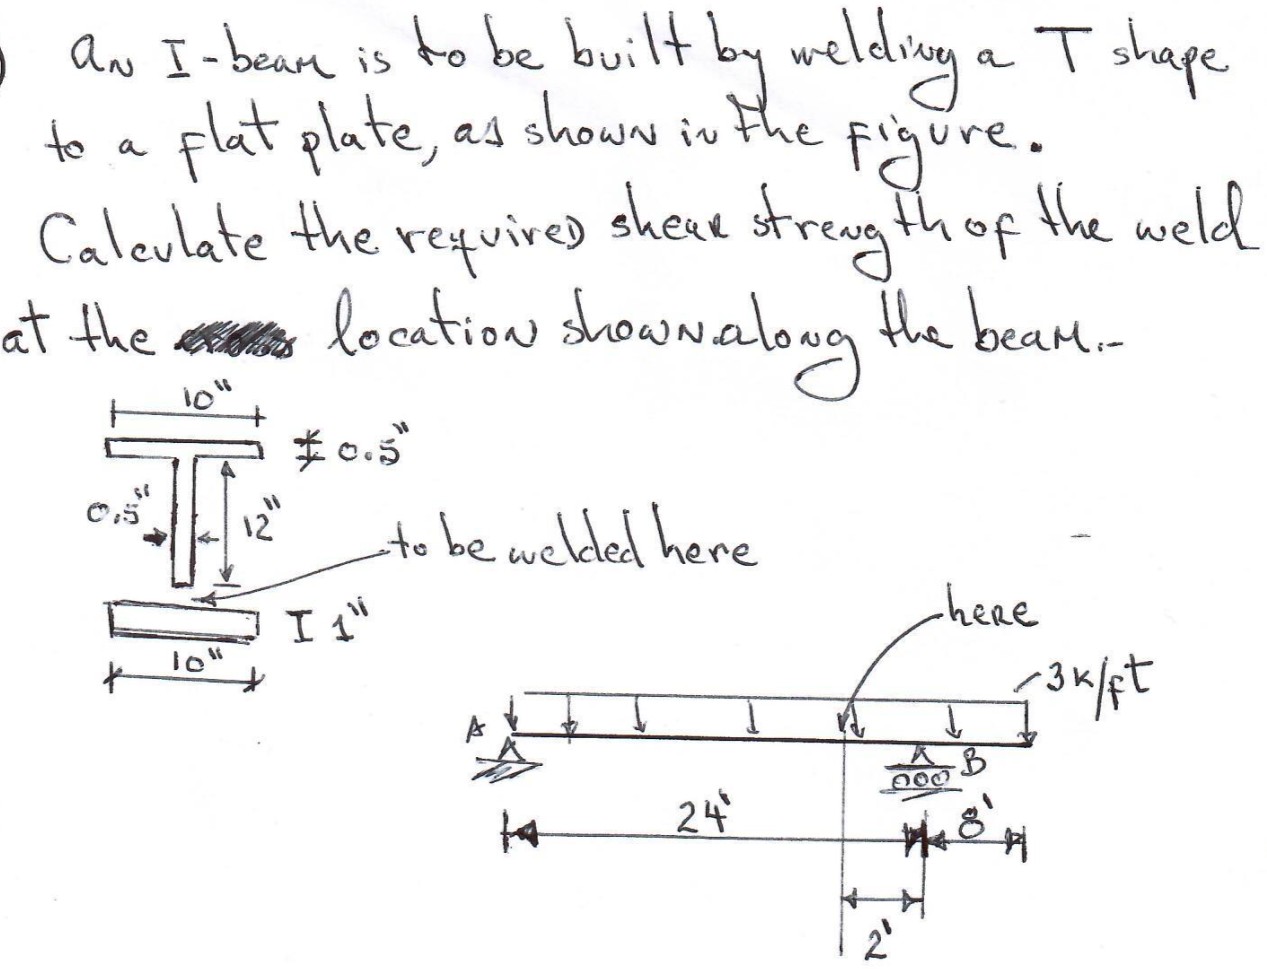 ) An I-beam is to be built by welding a T shape
to a flat plate, as shown in the figure.
Calculate the required shear strength of the weld
at the location shown along the beam.-
10"
0.5"
0.5"
12"
to be welded here
I 1"
10"
here
3k/ft
A
B
24'
8'
2'